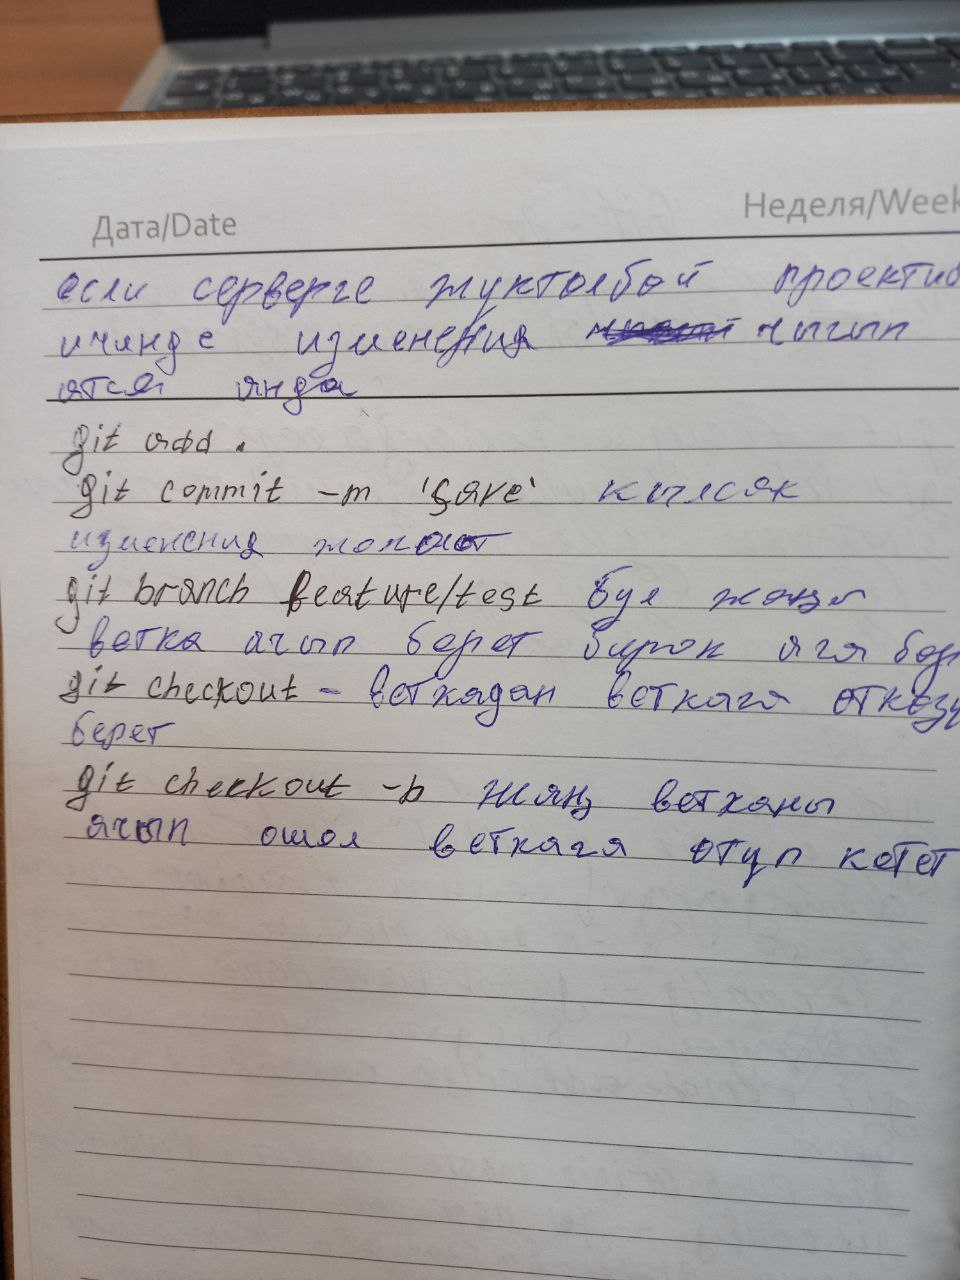 Дата/Date
Неделя/Week
если серверге жуктолбой проектив
ичянде изменения чыгып
ятся янда
git add .
git commit -m 'save' кылсак
изменения жолоот
git branch feature/test бул жаңы
ветка ачып берет бирок яга
git checkout - веткадан веткага откозу
берет
git checkout -b жяңы ветканы
ячып ошол веткага отуп кетет